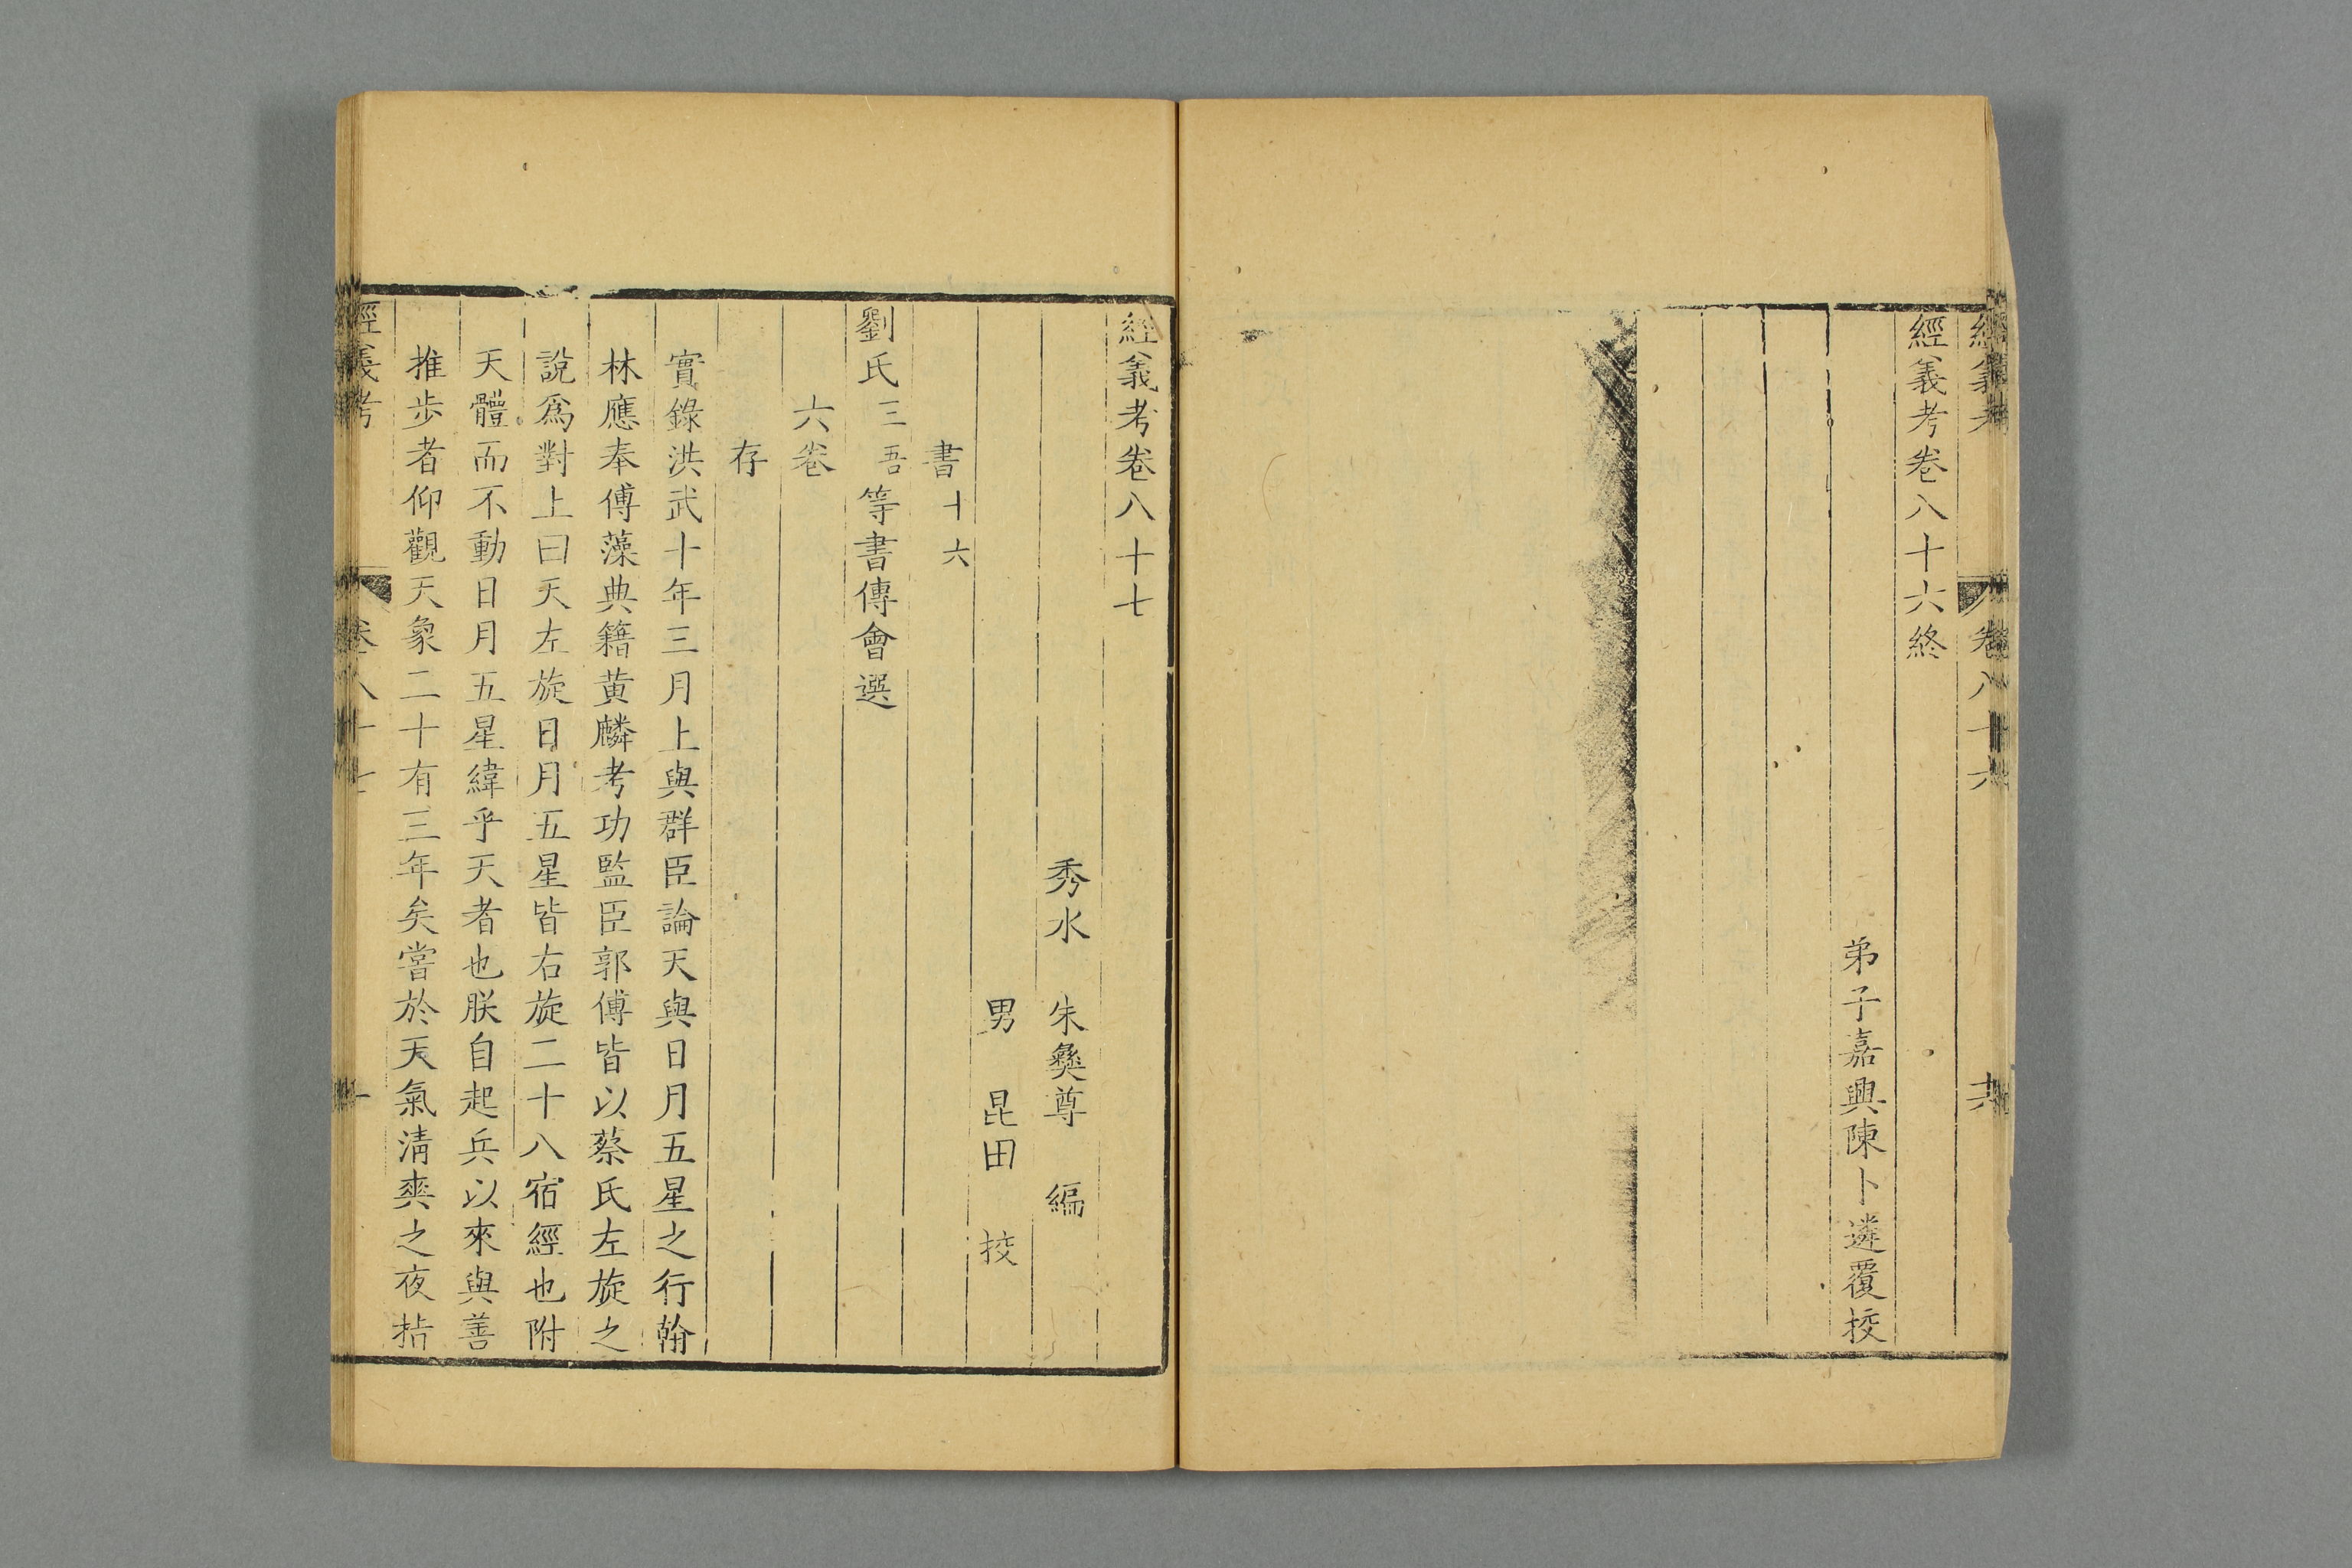 經義考 卷八十六 十六
經義考卷八十六終
弟子嘉興陳卜遴覆挍
經義考卷八十七
秀水 朱彝尊 編
男 昆田 挍
書十六
劉氏三吾等書傳會選
六卷
存
實錄洪武十年三月上與群臣論天與日月五星之行翰
林應奉傅藻典籍黄麟考功監臣郭傅皆以蔡氏左旋之
說爲對上曰天左旋日月五星皆右旋二十八宿經也附
天體而不動日月五星緯乎天者也朕自起兵以來與善
推步者仰觀天象二十有三年矣嘗於天氣淸爽之夜指
經義考 卷八十七 一